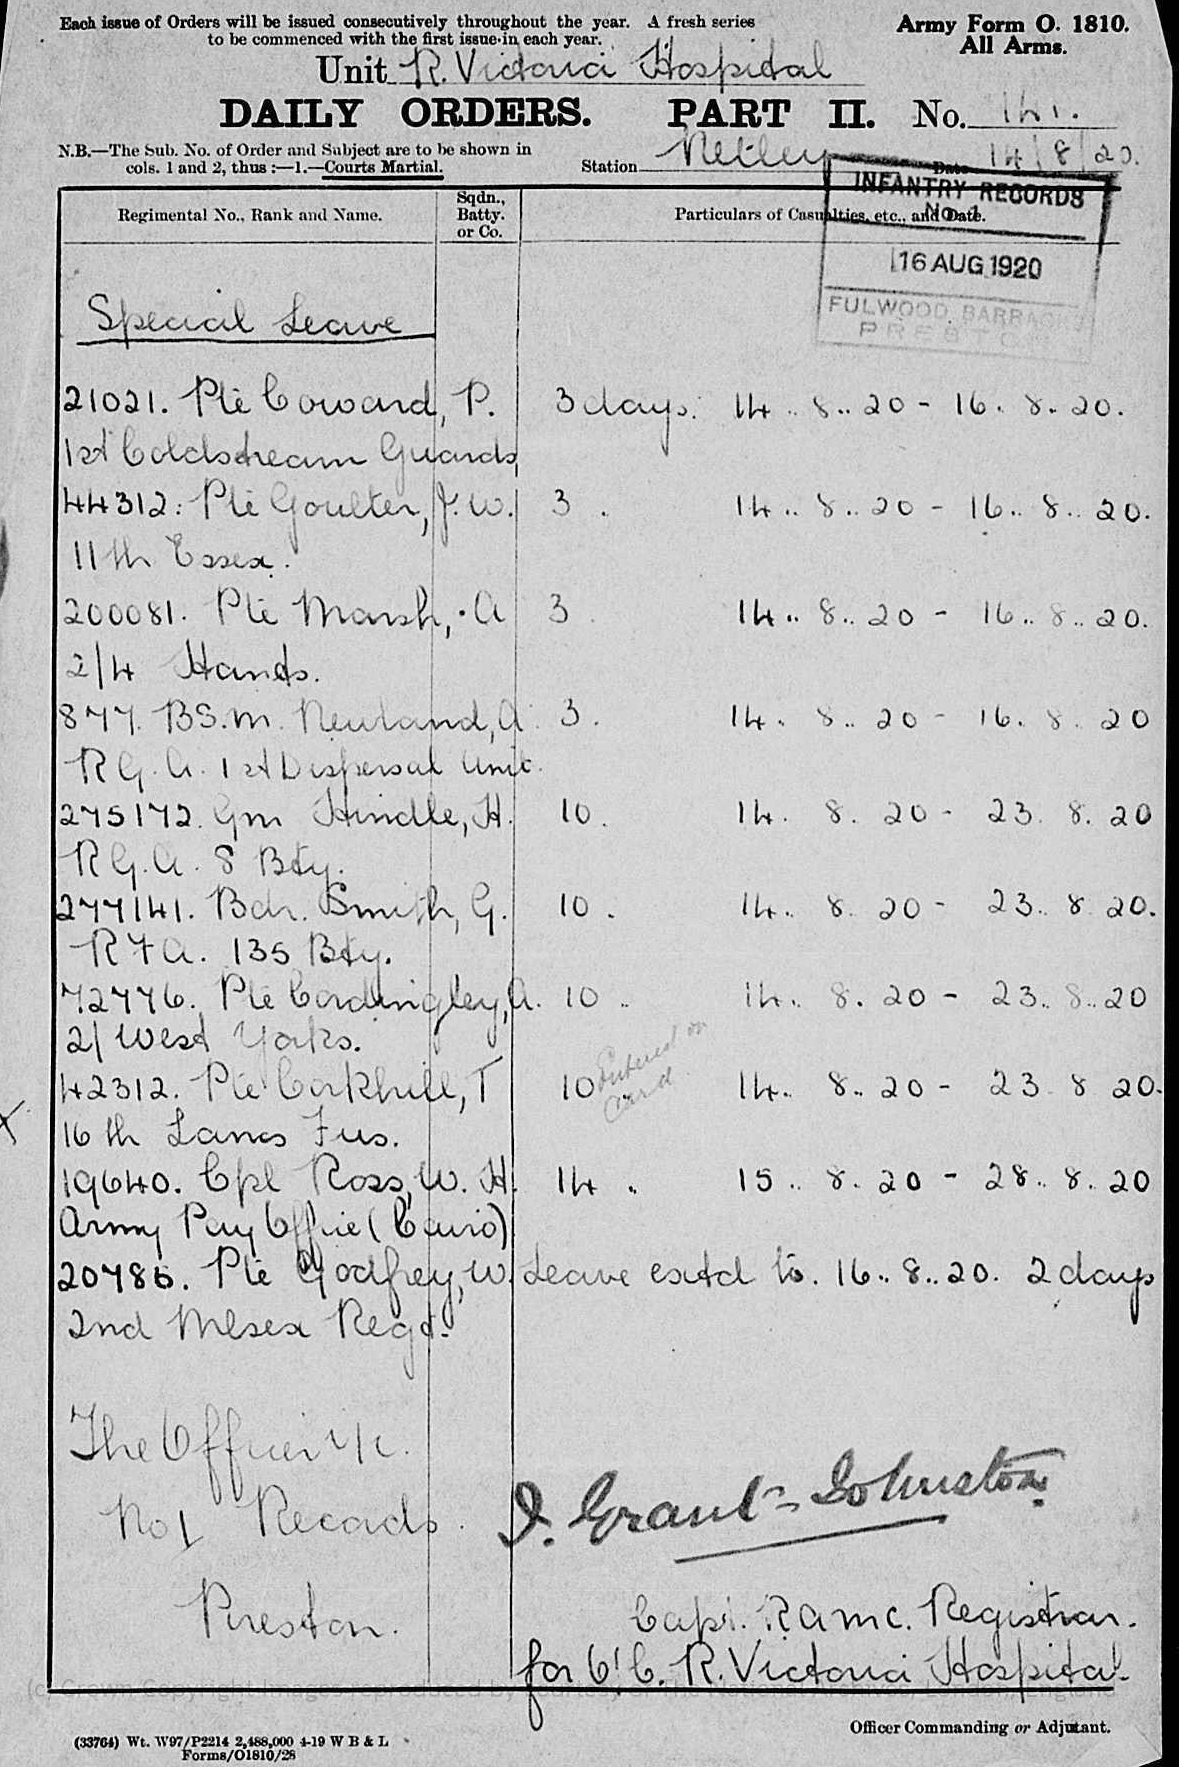 Each issue of Orders will be issued consecutively throughout the year. A fresh series
to be commenced with the first issue in each year.
Army Form O. 1810.
All Arms.
Unit R. Victoria Hospital
DAILY ORDERS. PART II. No. 141.
N.B.—The Sub. No. of Order and Subject are to be shown in
cols. 1 and 2, thus :—1.—Courts Martial.
Station Netley Date 14/8/20.
INFANTRY RECORDS
No. 1
16 AUG 1920
FULWOOD BARRACKS
PRESTON
Regimental No., Rank and Name.
Sqdn.,
Batty.
or Co.
Particulars of Casualties, etc., and Date.
Special Leave
21021. Pte Coward, P. 3 days. 14.. 8.. 20 - 16. 8. 20.
1st Coldstream Guards
44312. Pte Goulter, J. W. 3 . 14.. 8.. 20 - 16.. 8.. 20.
11th Essex.
200081. Pte Marsh, A 3 . 14.. 8.. 20 - 16.. 8.. 20.
2/4 Hants.
877. B.S.M. Newland, A. 3. 14. 8.. 20 - 16. 8. 20
R.G.A. 1st Dispersal Unit.
275172. Gnr Hindle, H. 10. 14. 8. 20 - 23. 8. 20
R.G.A. 8 Bty.
277141. Bdr. Smith, G. 10 . 14.. 8. 20 - 23.. 8 20.
R F A. 135 Bty.
72776. Pte Cordingley, A. 10 .. 14.. 8. 20 - 23.. 8.. 20
2/ West Yorks.
42312. Pte Corkhill, T 10 14.. 8.. 20 - 23 8 20.
Entered on
card
X
16th Lancs Fus.
19640. Cpl Ross, W. H. 14 . 15.. 8. 20 - 28.. 8. 20
Army Pay Office (Cairo)
20786. Pte Godfrey, W. Leave extd to. 16.. 8.. 20. 2 days
2nd Mlsex Regt.
The Officer i/c.
No 1 Records.
Preston.
J. Grant-Johnston
Capt. RAMC. Registrar.
for O.C. R. Victoria Hospital
(c) Crown Copyright Images reproduced by courtesy of The National Archives, London, England
Officer Commanding or Adjutant.
(33764) Wt. W97/P2214 2,488,000 4-19 W B & L
Forms/O1810/28